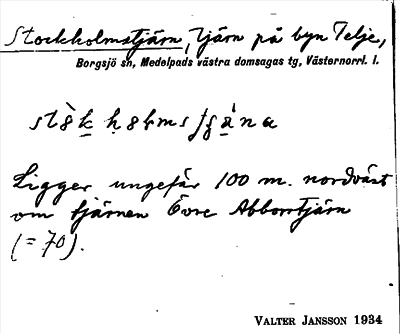 Stockholmstjärn, tjärn på byn Telje,
Borgsjö sn, Medelpads västra domsagas tg, Västernorrl. l.
Ligger ungefär 100 m. nordväst
om tjärnen Övre Abborrtjärn
(= 70).
VALTER JANSSON 1934